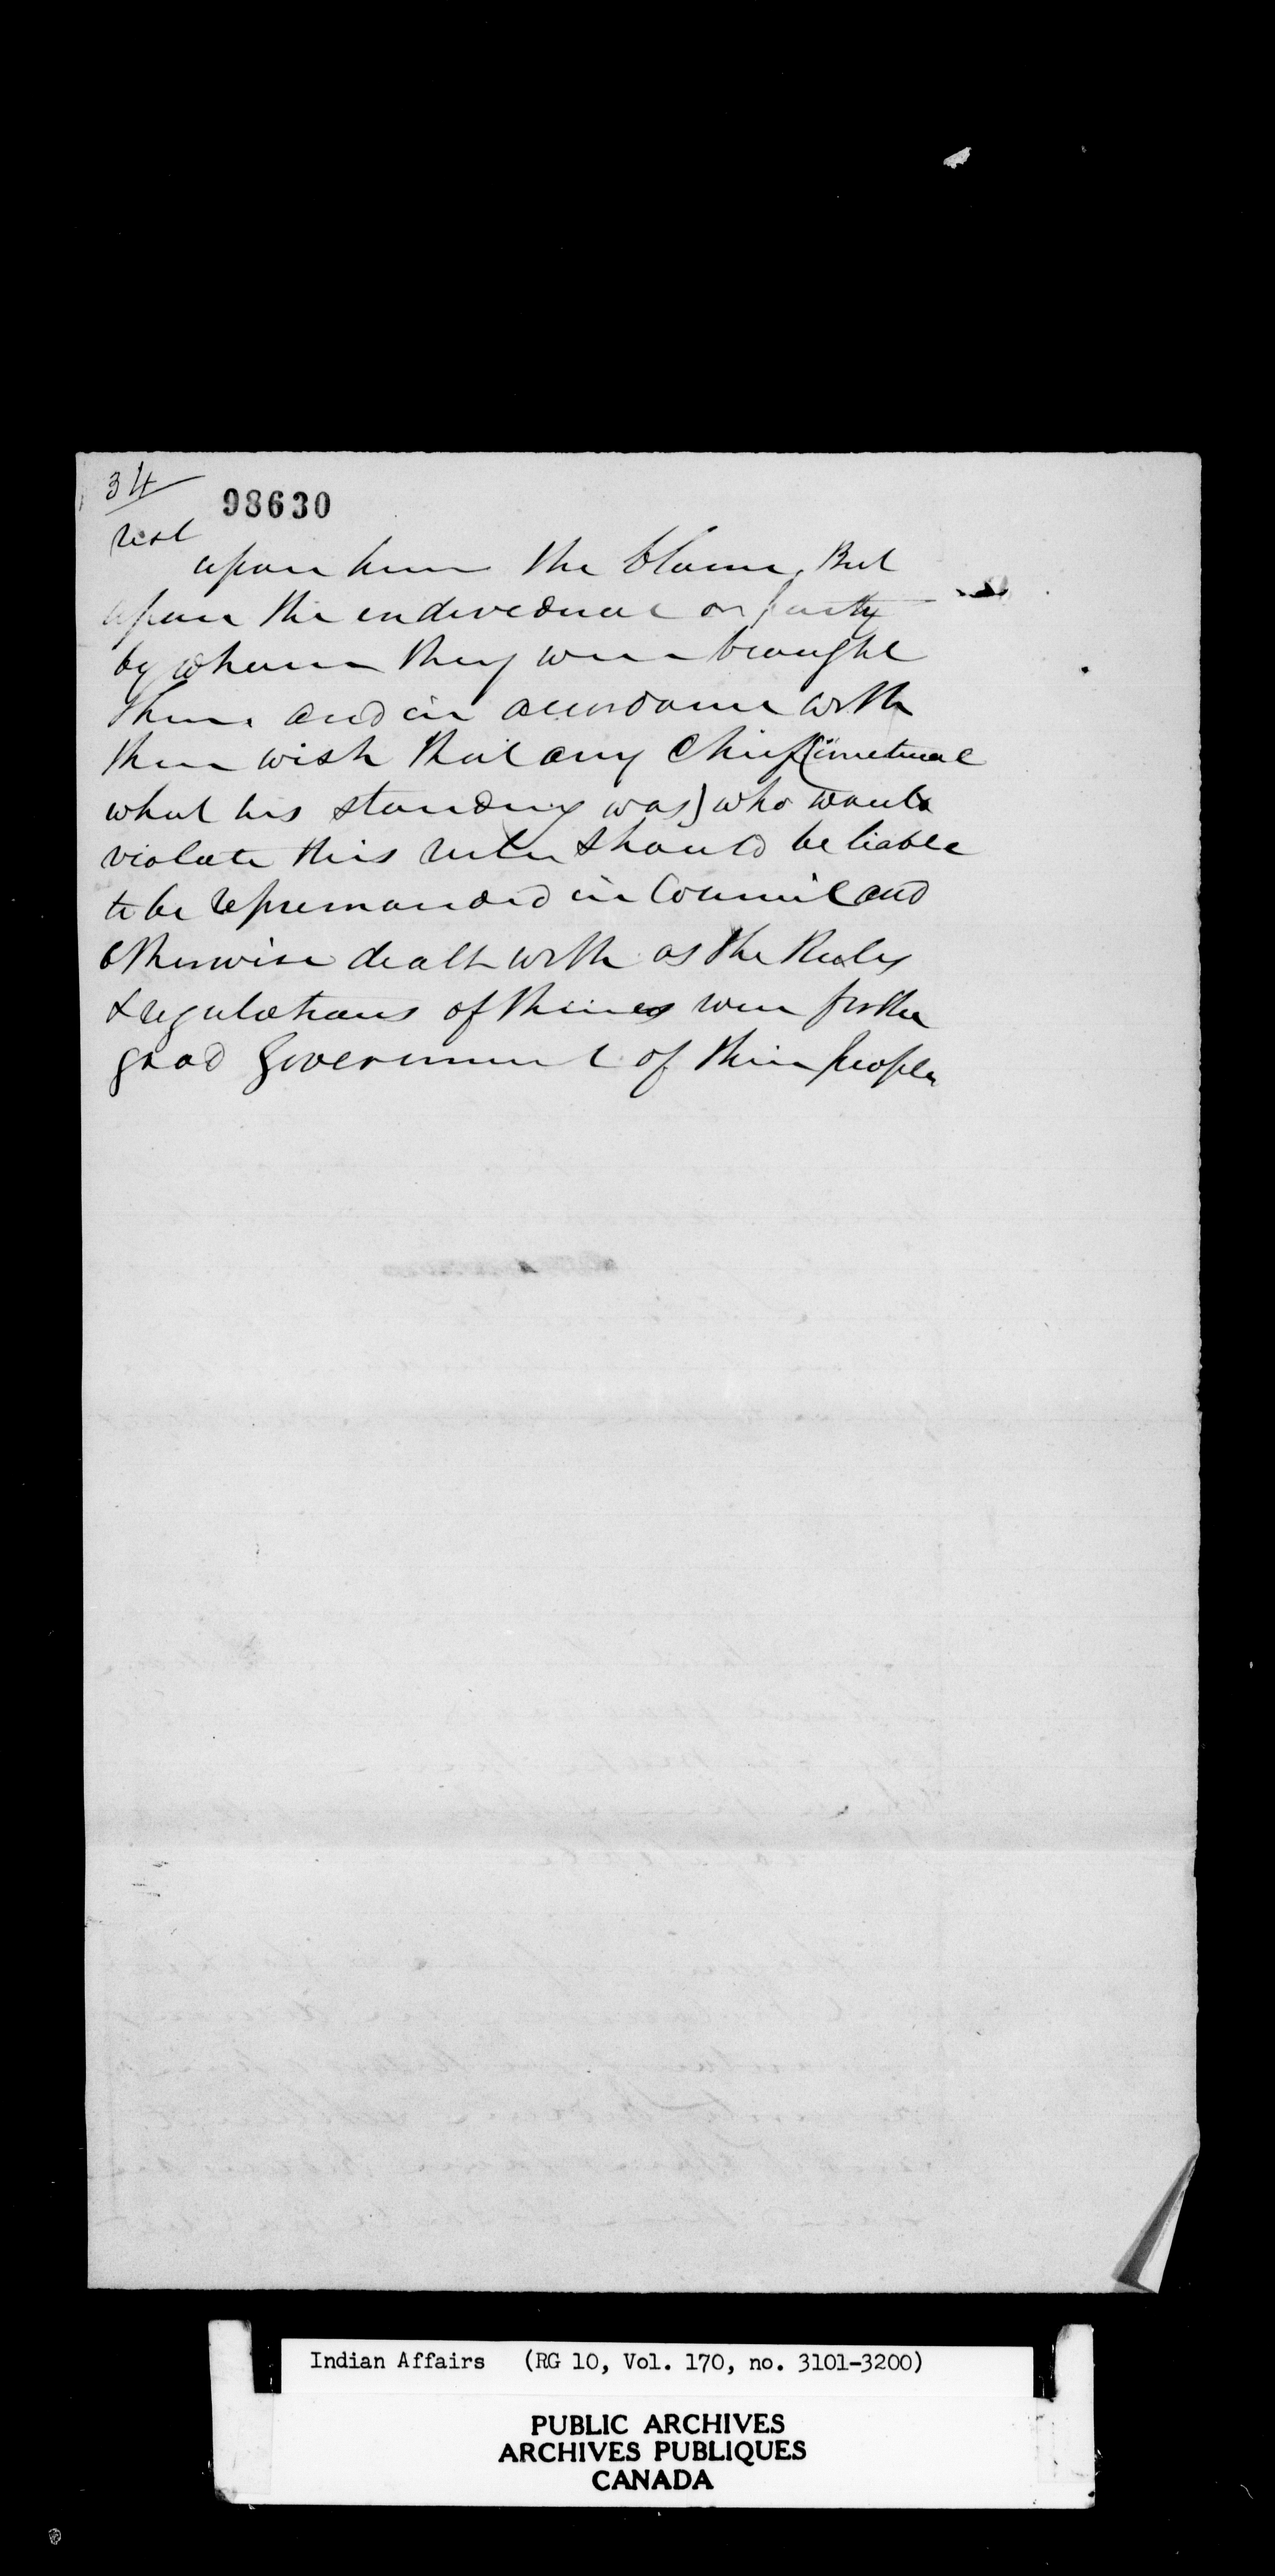 34
98630
rest
upon him the blame, But
upon the endividual or party
by whom they were brought
there and in accordance with
their wish that any Chief (
what his standing was) who would
violate this rule should be liable
to be repremanded in Council and
otherwise dealt with as the Rules
& regulations of theirs were for the
good Government of their people
Indian Affairs (RG 10, Vol. 170, no. 3101-3200)
PUBLIC ARCHIVES
ARCHIVES PUBLIQUES
CANADA